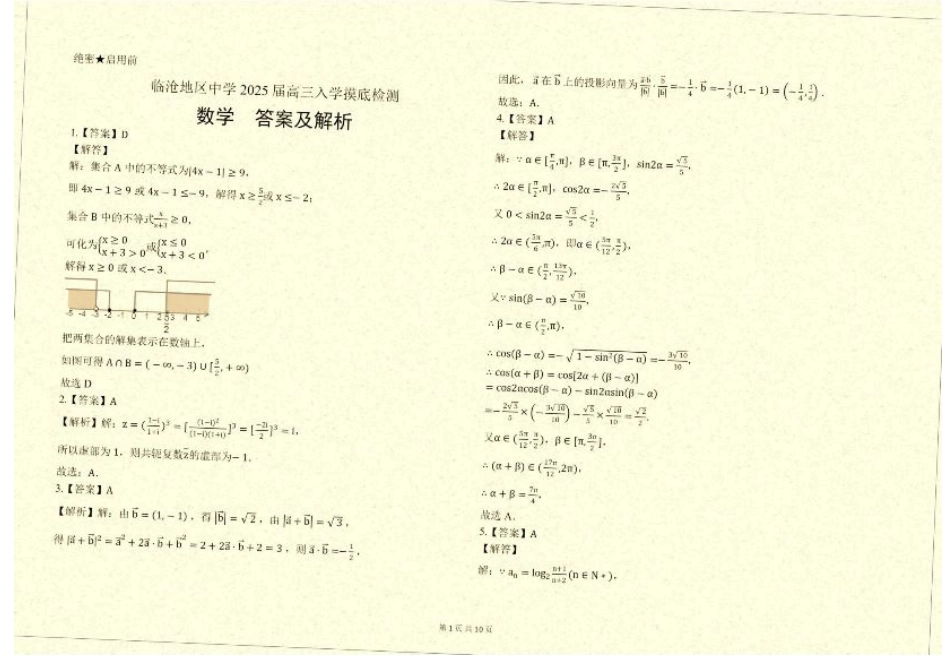 绝密★启用前
临沧地区中学 2025 届高三入学摸底检测
数学 答案及解析
1.【答案】D
【解答】
解：集合 A 中的不等式为|4x − 1| ≥ 9，
即 4x − 1 ≥ 9 或 4x − 1 ≤ −9，解得 x ≥ 5/2 或 x ≤ −2；
集合 B 中的不等式 x/(x+3) ≥ 0，
可化为{x ≥ 0, x + 3 > 0 或{x ≤ 0, x + 3 < 0，
解得 x ≥ 0 或 x < −3．
-5 -4 -3 -2 -1 0 1 2 5/2 3 4 5
把两集合的解集表示在数轴上，
如图可得 A ∩ B = (−∞, −3) ∪ [5/2, +∞)
故选 D
2.【答案】A
【解析】解：z = ((1−i)/(1+i))³ = [(1−i)²/((1−i)(1+i))]³ = [−2i/2]³ = i，
所以虚部为 1，则共轭复数z̄的虚部为−1．
故选：A．
3.【答案】A
【解析】解：由 b⃗ = (1, −1)，得 |b⃗| = √2，由 |a⃗ + b⃗| = √3，
得 |a⃗ + b⃗|² = a⃗² + 2a⃗ · b⃗ + b⃗² = 2 + 2a⃗ · b⃗ + 2 = 3，则 a⃗ · b⃗ = −1/2，
因此，a⃗ 在 b⃗ 上的投影向量为 (a⃗·b⃗)/|b⃗| · b⃗/|b⃗| = −1/4 · b⃗ = −1/4(1, −1) = (−1/4, 1/4)．
故选：A．
4.【答案】A
【解答】
解：∵ α ∈ [π/4, π]，β ∈ [π, 3π/2]，sin2α = √5/5，
∴ 2α ∈ [π/2, π]，cos2α = −2√5/5，
又 0 < sin2α = √5/5 < 1/2，
∴ 2α ∈ (5π/6, π)，即α ∈ (5π/12, π/2)，
∴ β − α ∈ (π/2, 13π/12)，
又∵ sin(β − α) = √10/10，
∴ β − α ∈ (π/2, π)，
∴ cos(β − α) = −√(1 − sin²(β − α)) = −3√10/10，
∴ cos(α + β) = cos[2α + (β − α)]
= cos2αcos(β − α) − sin2αsin(β − α)
= −2√5/5 × (−3√10/10) − √5/5 × √10/10 = √2/2，
又α ∈ (5π/12, π/2)，β ∈ [π, 3π/2]，
∴ (α + β) ∈ (17π/12, 2π)，
∴ α + β = 7π/4，
故选 A．
5.【答案】A
【解答】
解：∵ aₙ = log₂ (n+1)/(n+2) (n ∈ N∗)，
第 1 页 共 10 页